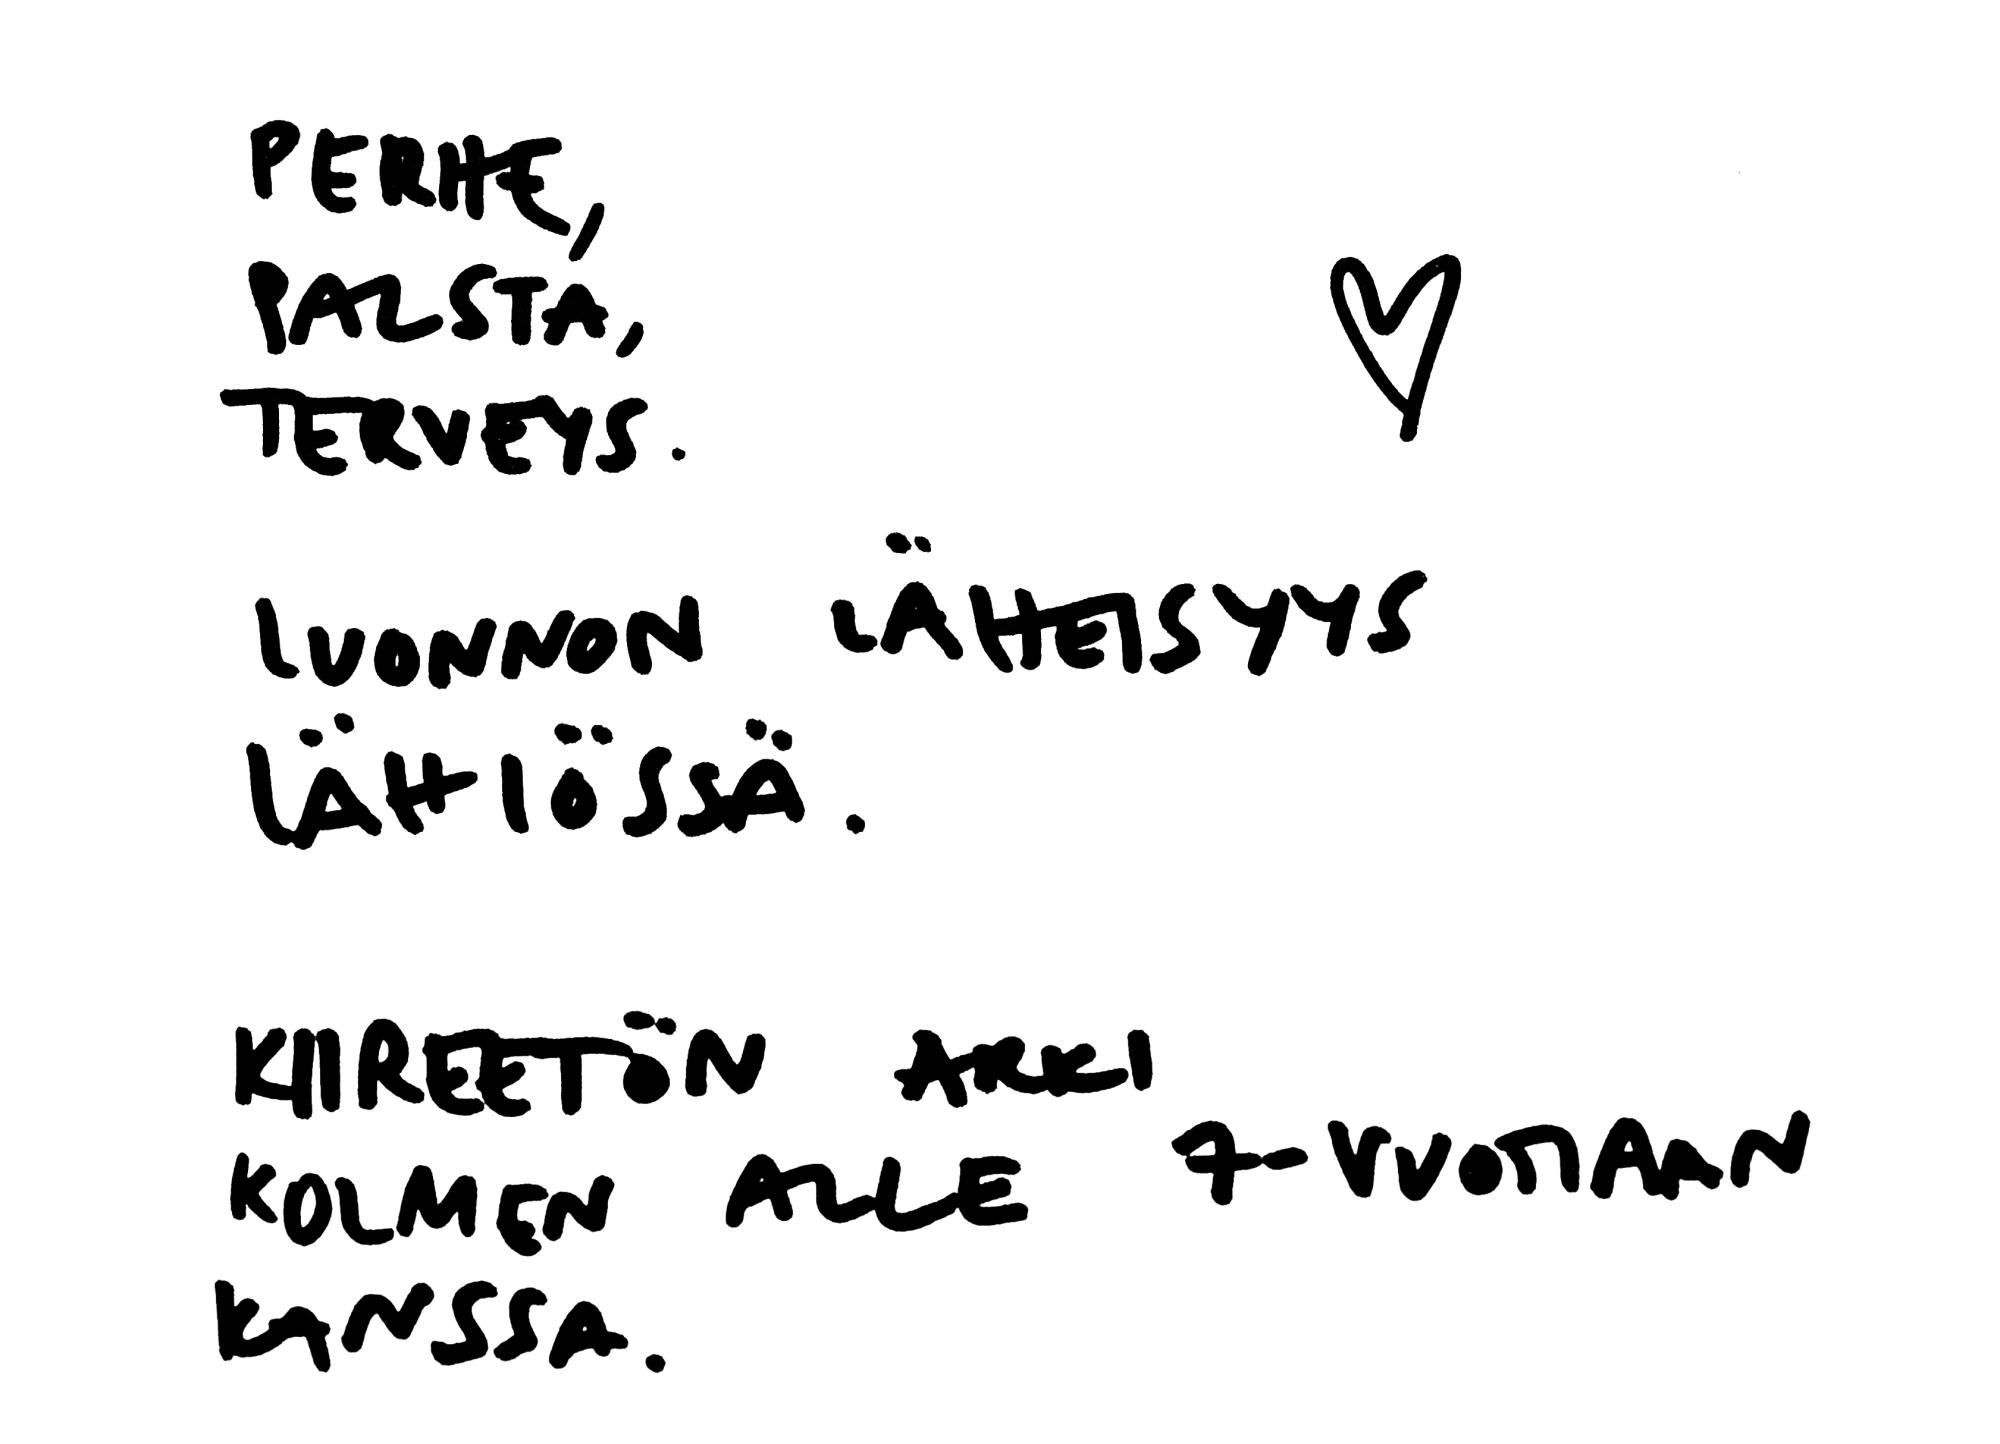 PERHE,
PALSTA,
TERVEYS.
LUONNON LÄHEISYYS
LÄHIÖSSÄ.
KIIREETÖN ARKI
KOLMEN ALLE 7-VUOTIAAN
KANSSA.